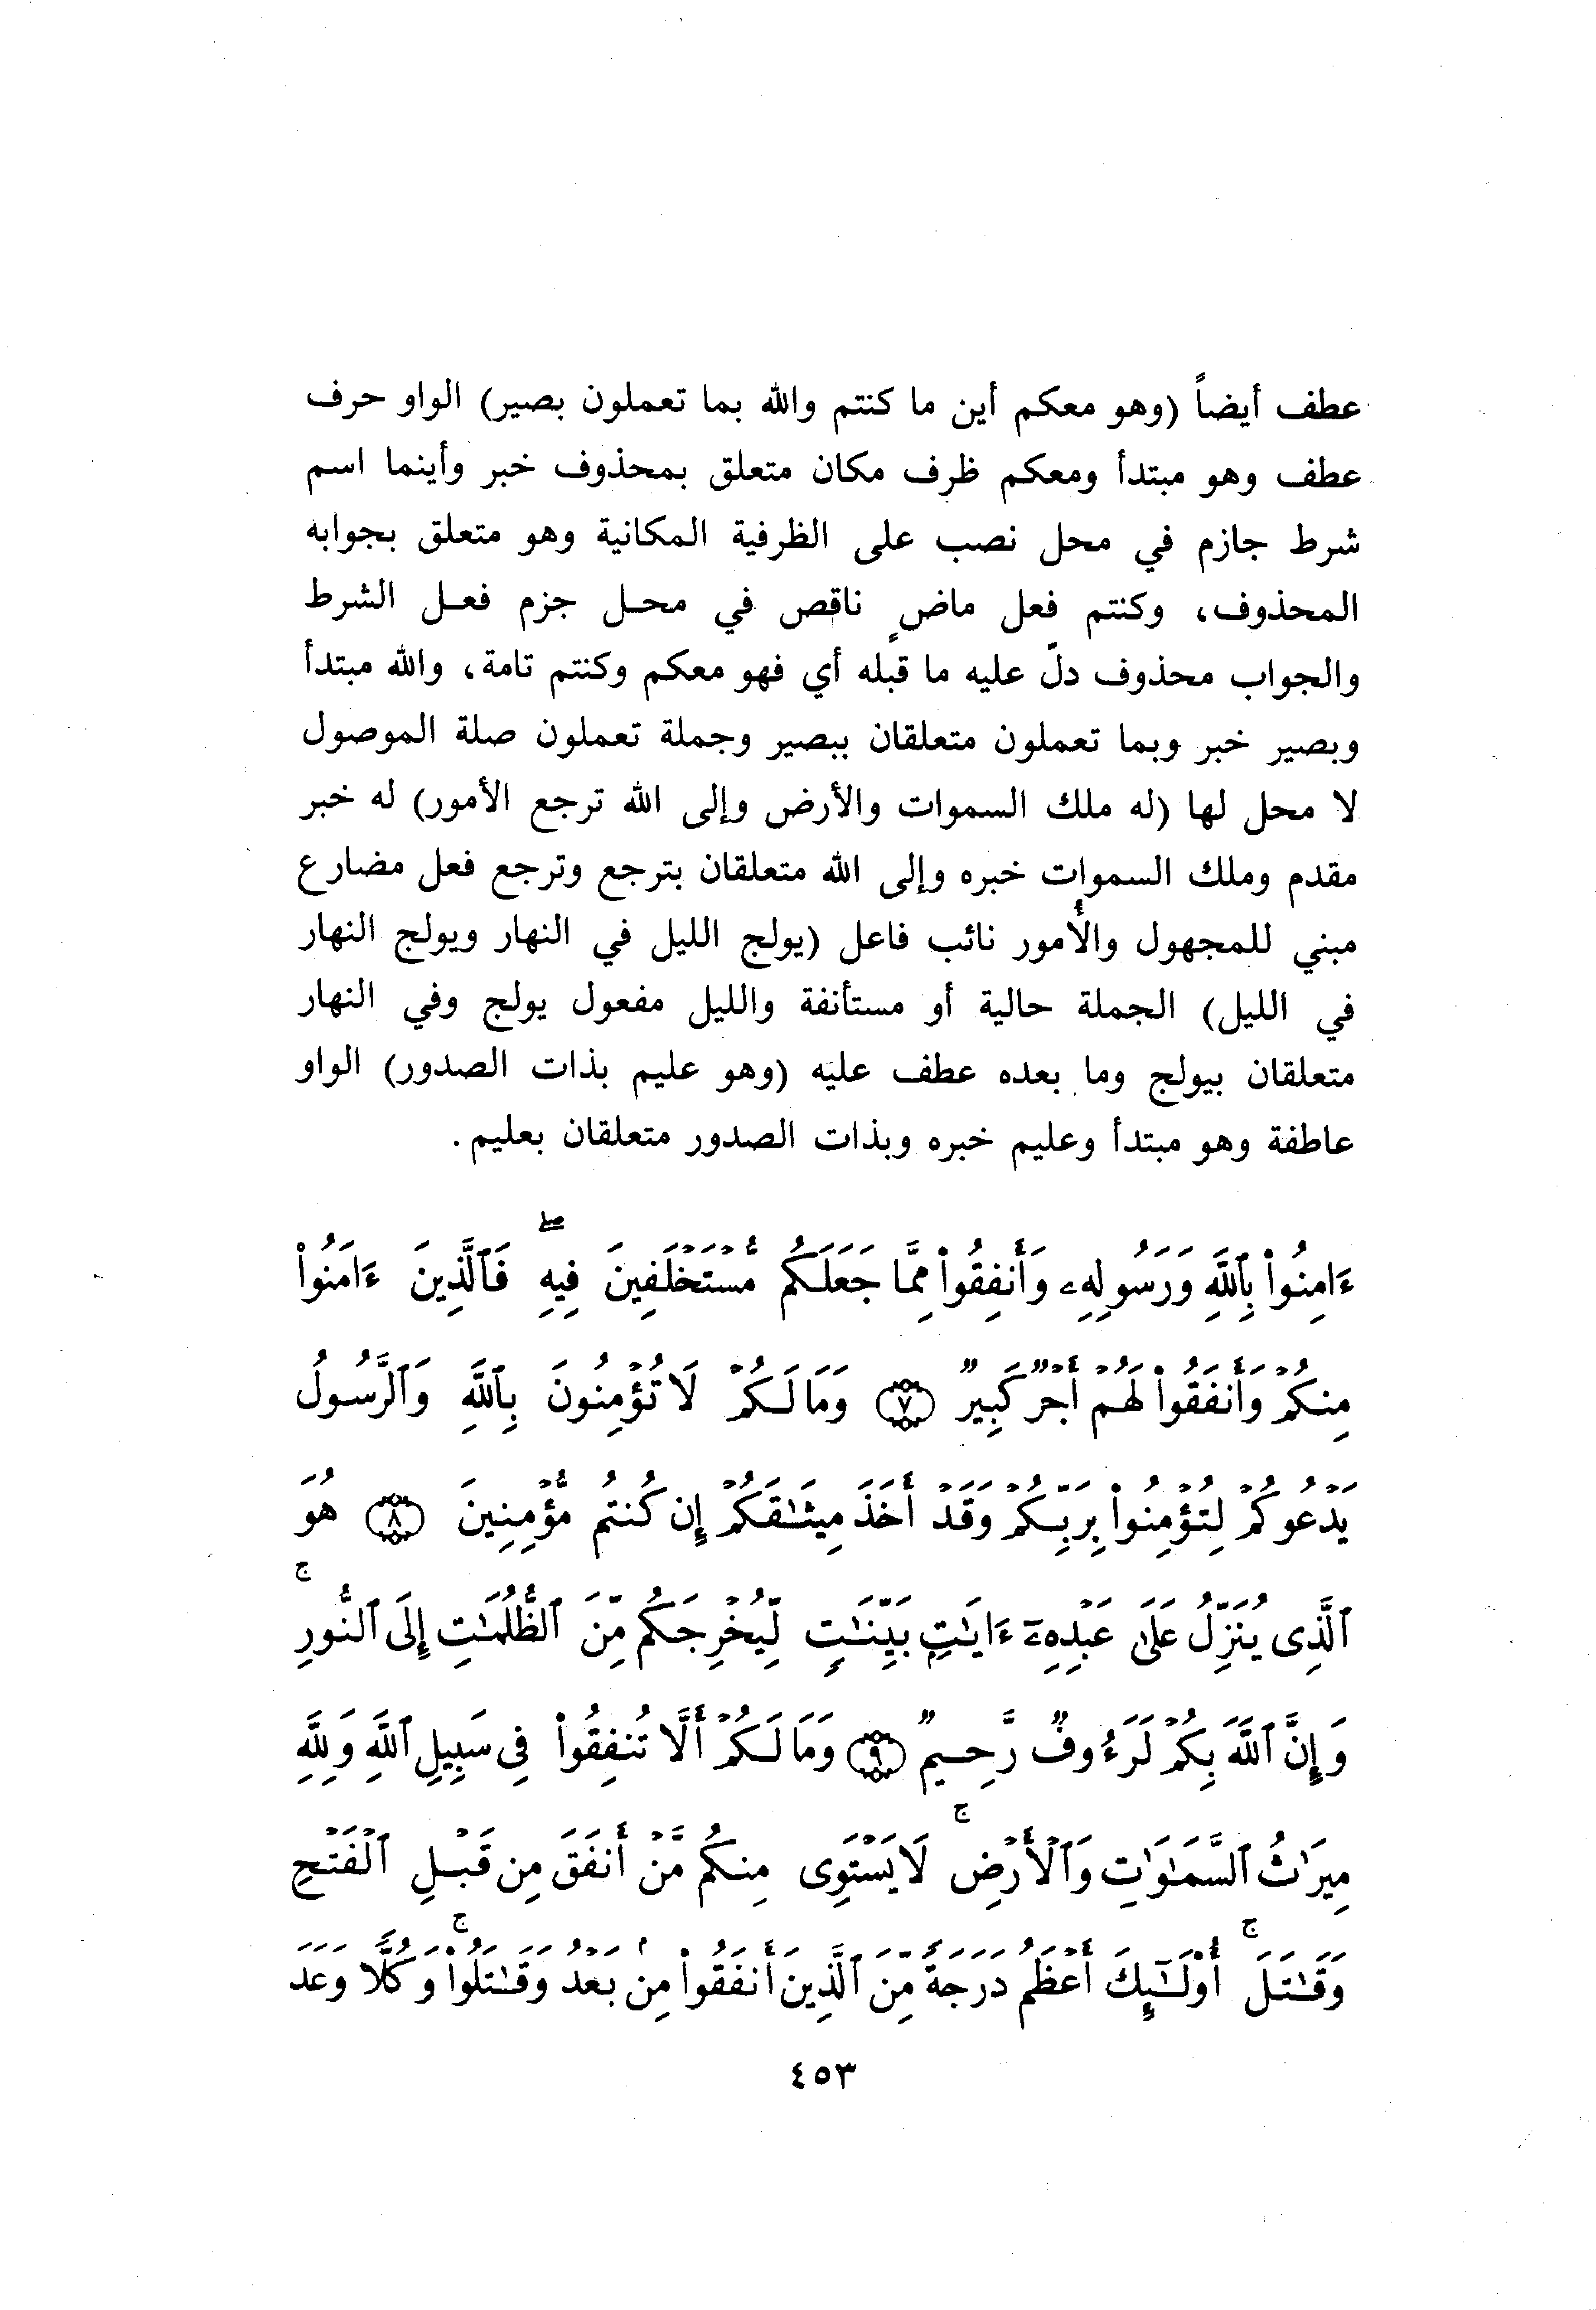 عطف أيضاً (وهو معكم أين ما كنتم والله بما تعملون بصير) الواو حرف
عطف وهو مبتدأ ومعكم ظرف مكان متعلق بمحذوف خبر وأينما اسم
شرط جازم في محل نصب على الظرفية المكانية وهو متعلق بجوابه
المحذوف، وكنتم فعل ماضٍ ناقص في محل جزم فعل الشرط
والجواب محذوف دلّ عليه ما قبله أي فهو معكم وكنتم تامة، والله مبتدأ
وبصير خبر وبما تعملون متعلقان ببصير وجملة تعملون صلة الموصول
لا محل لها (له ملك السموات والأرض وإلى الله ترجع الأمور) له خبر
مقدم وملك السموات خبره وإلى الله متعلقان بترجع وترجع فعل مضارع
مبني للمجهول والأُمور نائب فاعل (يولج الليل في النهار ويولج النهار
في الليل) الجملة حالية أو مستأنفة والليل مفعول يولج وفي النهار
متعلقان بيولج وما بعده عطف عليه (وهو عليم بذات الصدور) الواو
عاطفة وهو مبتدأ وعليم خبره وبذات الصدور متعلقان بعليم.
ءَامِنُوا۟ بِٱللَّهِ وَرَسُولِهِۦ وَأَنفِقُوا۟ مِمَّا جَعَلَكُم مُّسْتَخْلَفِينَ فِيهِ ۖ فَٱلَّذِينَ ءَامَنُوا۟
مِنكُمْ وَأَنفَقُوا۟ لَهُمْ أَجْرٌ كَبِيرٌ ﴿٧﴾ وَمَا لَكُمْ لَا تُؤْمِنُونَ بِٱللَّهِ وَٱلرَّسُولُ
يَدْعُوكُمْ لِتُؤْمِنُوا۟ بِرَبِّكُمْ وَقَدْ أَخَذَ مِيثَـٰقَكُمْ إِن كُنتُم مُّؤْمِنِينَ ﴿٨﴾ هُوَ
ٱلَّذِى يُنَزِّلُ عَلَىٰ عَبْدِهِۦٓ ءَايَـٰتٍۭ بَيِّنَـٰتٍ لِّيُخْرِجَكُم مِّنَ ٱلظُّلُمَـٰتِ إِلَى ٱلنُّورِ ۚ
وَإِنَّ ٱللَّهَ بِكُمْ لَرَءُوفٌ رَّحِيمٌ ﴿٩﴾ وَمَا لَكُمْ أَلَّا تُنفِقُوا۟ فِى سَبِيلِ ٱللَّهِ وَلِلَّهِ
مِيرَٰثُ ٱلسَّمَـٰوَٰتِ وَٱلْأَرْضِ ۚ لَا يَسْتَوِى مِنكُم مَّنْ أَنفَقَ مِن قَبْلِ ٱلْفَتْحِ
وَقَـٰتَلَ ۚ أُو۟لَـٰٓئِكَ أَعْظَمُ دَرَجَةً مِّنَ ٱلَّذِينَ أَنفَقُوا۟ مِنۢ بَعْدُ وَقَـٰتَلُوا۟ ۚ وَكُلًّا وَعَدَ
٤٥٣